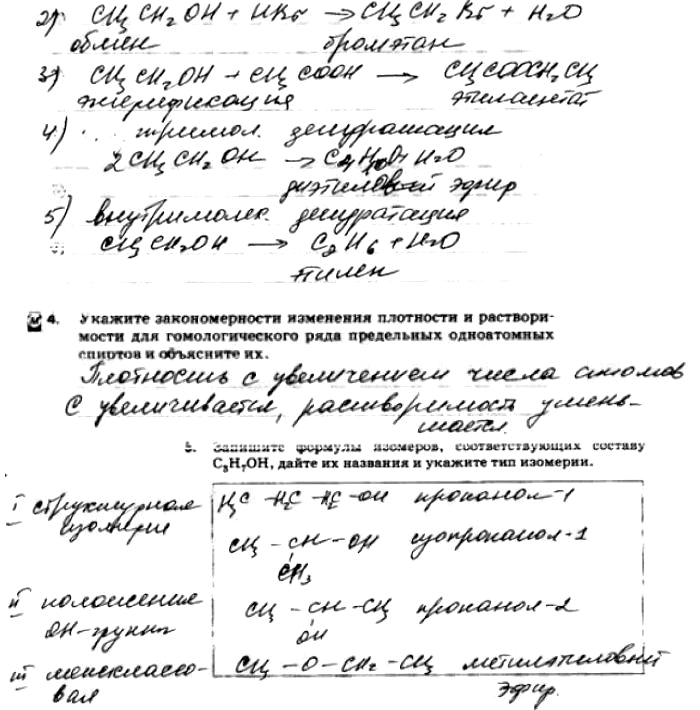 2) CH3CH2OH + HBr → CH3CH2Br + H2O
обмен бромэтан
3) CH3CH2OH + CH3COOH → CH3COOCH2CH3
этерификация этилацетат
4) дегидратация
2CH3CH2OH → H2O
диэтиловый эфир
5) внутримолек. дегидратация
CH3CH2OH → C2H6 + H2O
этилен
4. Укажите закономерности изменения плотности и раствори-
мости для гомологического ряда предельных одноатомных
спиртов и объясните их.
Плотность с увеличением числа атомов
C увеличивается, растворимость умень-
шается.
5. Запишите формулы изомеров, соответствующих составу
C3H7OH, дайте их названия и укажите тип изомерии.
I структурная H3C – H2C – H2C – OH пропанол-1
изомерия
CH3 – CH – OH изопропанол-1
CH3
II положение CH3 – CH – CH3 пропанол-2
OH-групп OH
III межклассо- CH3 – O – CH2 – CH3 метилэтиловый
вая эфир.